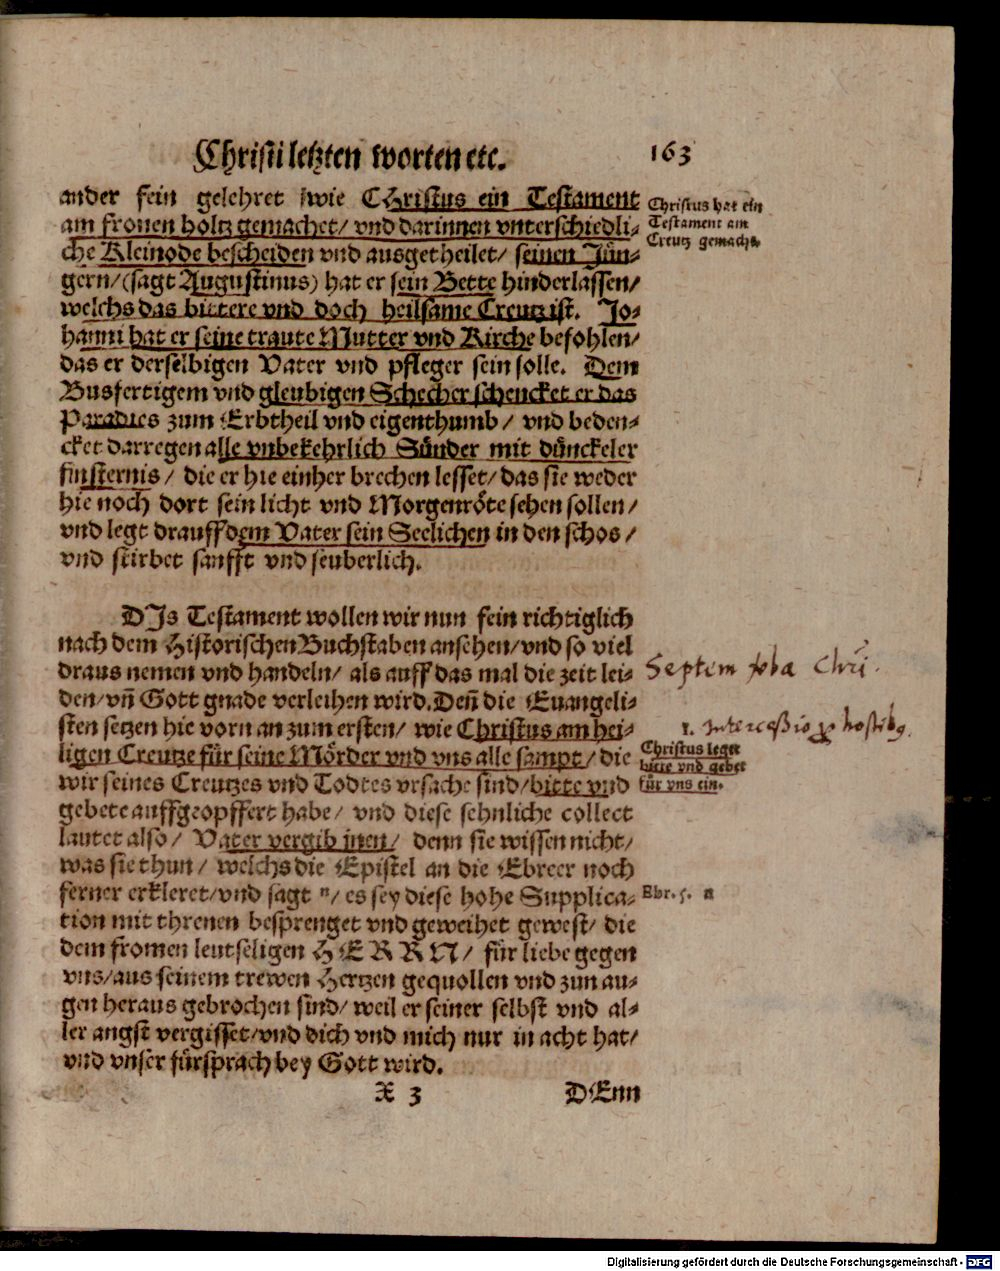 Christi letzten worten etc. 163
ander fein gelehret / wie CHristus ein Testament
am fronen holtz gemachet / vnd darinnen vnterschiedli-
che Kleinode bescheiden vnd ausgetheilet / seinen Jün-
gern / (sagt Augustinus) hat er sein Bette hinderlassen /
welchs das bittere vnd doch heilsame Creutz ist. Jo-
hanni hat er seine traute Mutter vnd Kirche befohlen /
das er derselbigen Vater vnd pfleger sein solle. Dem
Busfertigem vnd gleubigen Schecher schencket er das
Paradies zum Erbtheil vnd eigenthumb / vnd beden-
cket dargegen alle vnbekehrlich Sünder mit dünckeler
finsternis / die er hie einher brechen lesset / das sie weder
hie noch dort sein licht vnd Morgenröte sehen sollen /
vnd legt drauff dem Vater sein Seelichen in den schos /
vnd stirbet sanfft vnd seuberlich.
Christus hat ein
Testament am
Creutz gemacht.
DJs Testament wollen wir nun fein richtiglich
nach dem Historischen Buchstaben ansehen / vnd so viel
draus nemen vnd handeln / als auff das mal die zeit lei-
den / vñ Gott gnade verleihen wird. Deñ die Euangeli-
sten setzen hie vorn an zum ersten / wie Christus am hei-
ligen Creutze für seine Mörder vnd vns alle sampt / die
wir seines Creutzes vnd Todtes vrsache sind / bitte vnd
gebete auffgeopffert habe / vnd diese sehnliche collect
lautet also / Vater vergib jnen / denn sie wissen nicht /
was sie thun / welchs die Epistel an die Ebreer noch
ferner erkleret / vnd sagt n / es sey diese hohe Supplica-
tion mit threnen besprenget vnd geweihet gewest / die
dem fromen leutseligen HERRN / für liebe gegen
vns / aus seinem trewen Hertzen gequollen vnd zun au-
gen heraus gebrochen sind / weil er seiner selbst vnd al-
ler angst vergisset / vnd dich vnd mich nur in acht hat /
vnd vnser fürsprach bey Gott wird.
Septem v̄ba Chrī.
1. Intercessio p hostibus.
Christus leget
bitte vnd gebet
für vns ein.
Ebr. 5. n
X 3 DEnn
Digitalisierung gefördert durch die Deutsche Forschungsgemeinschaft - DFG